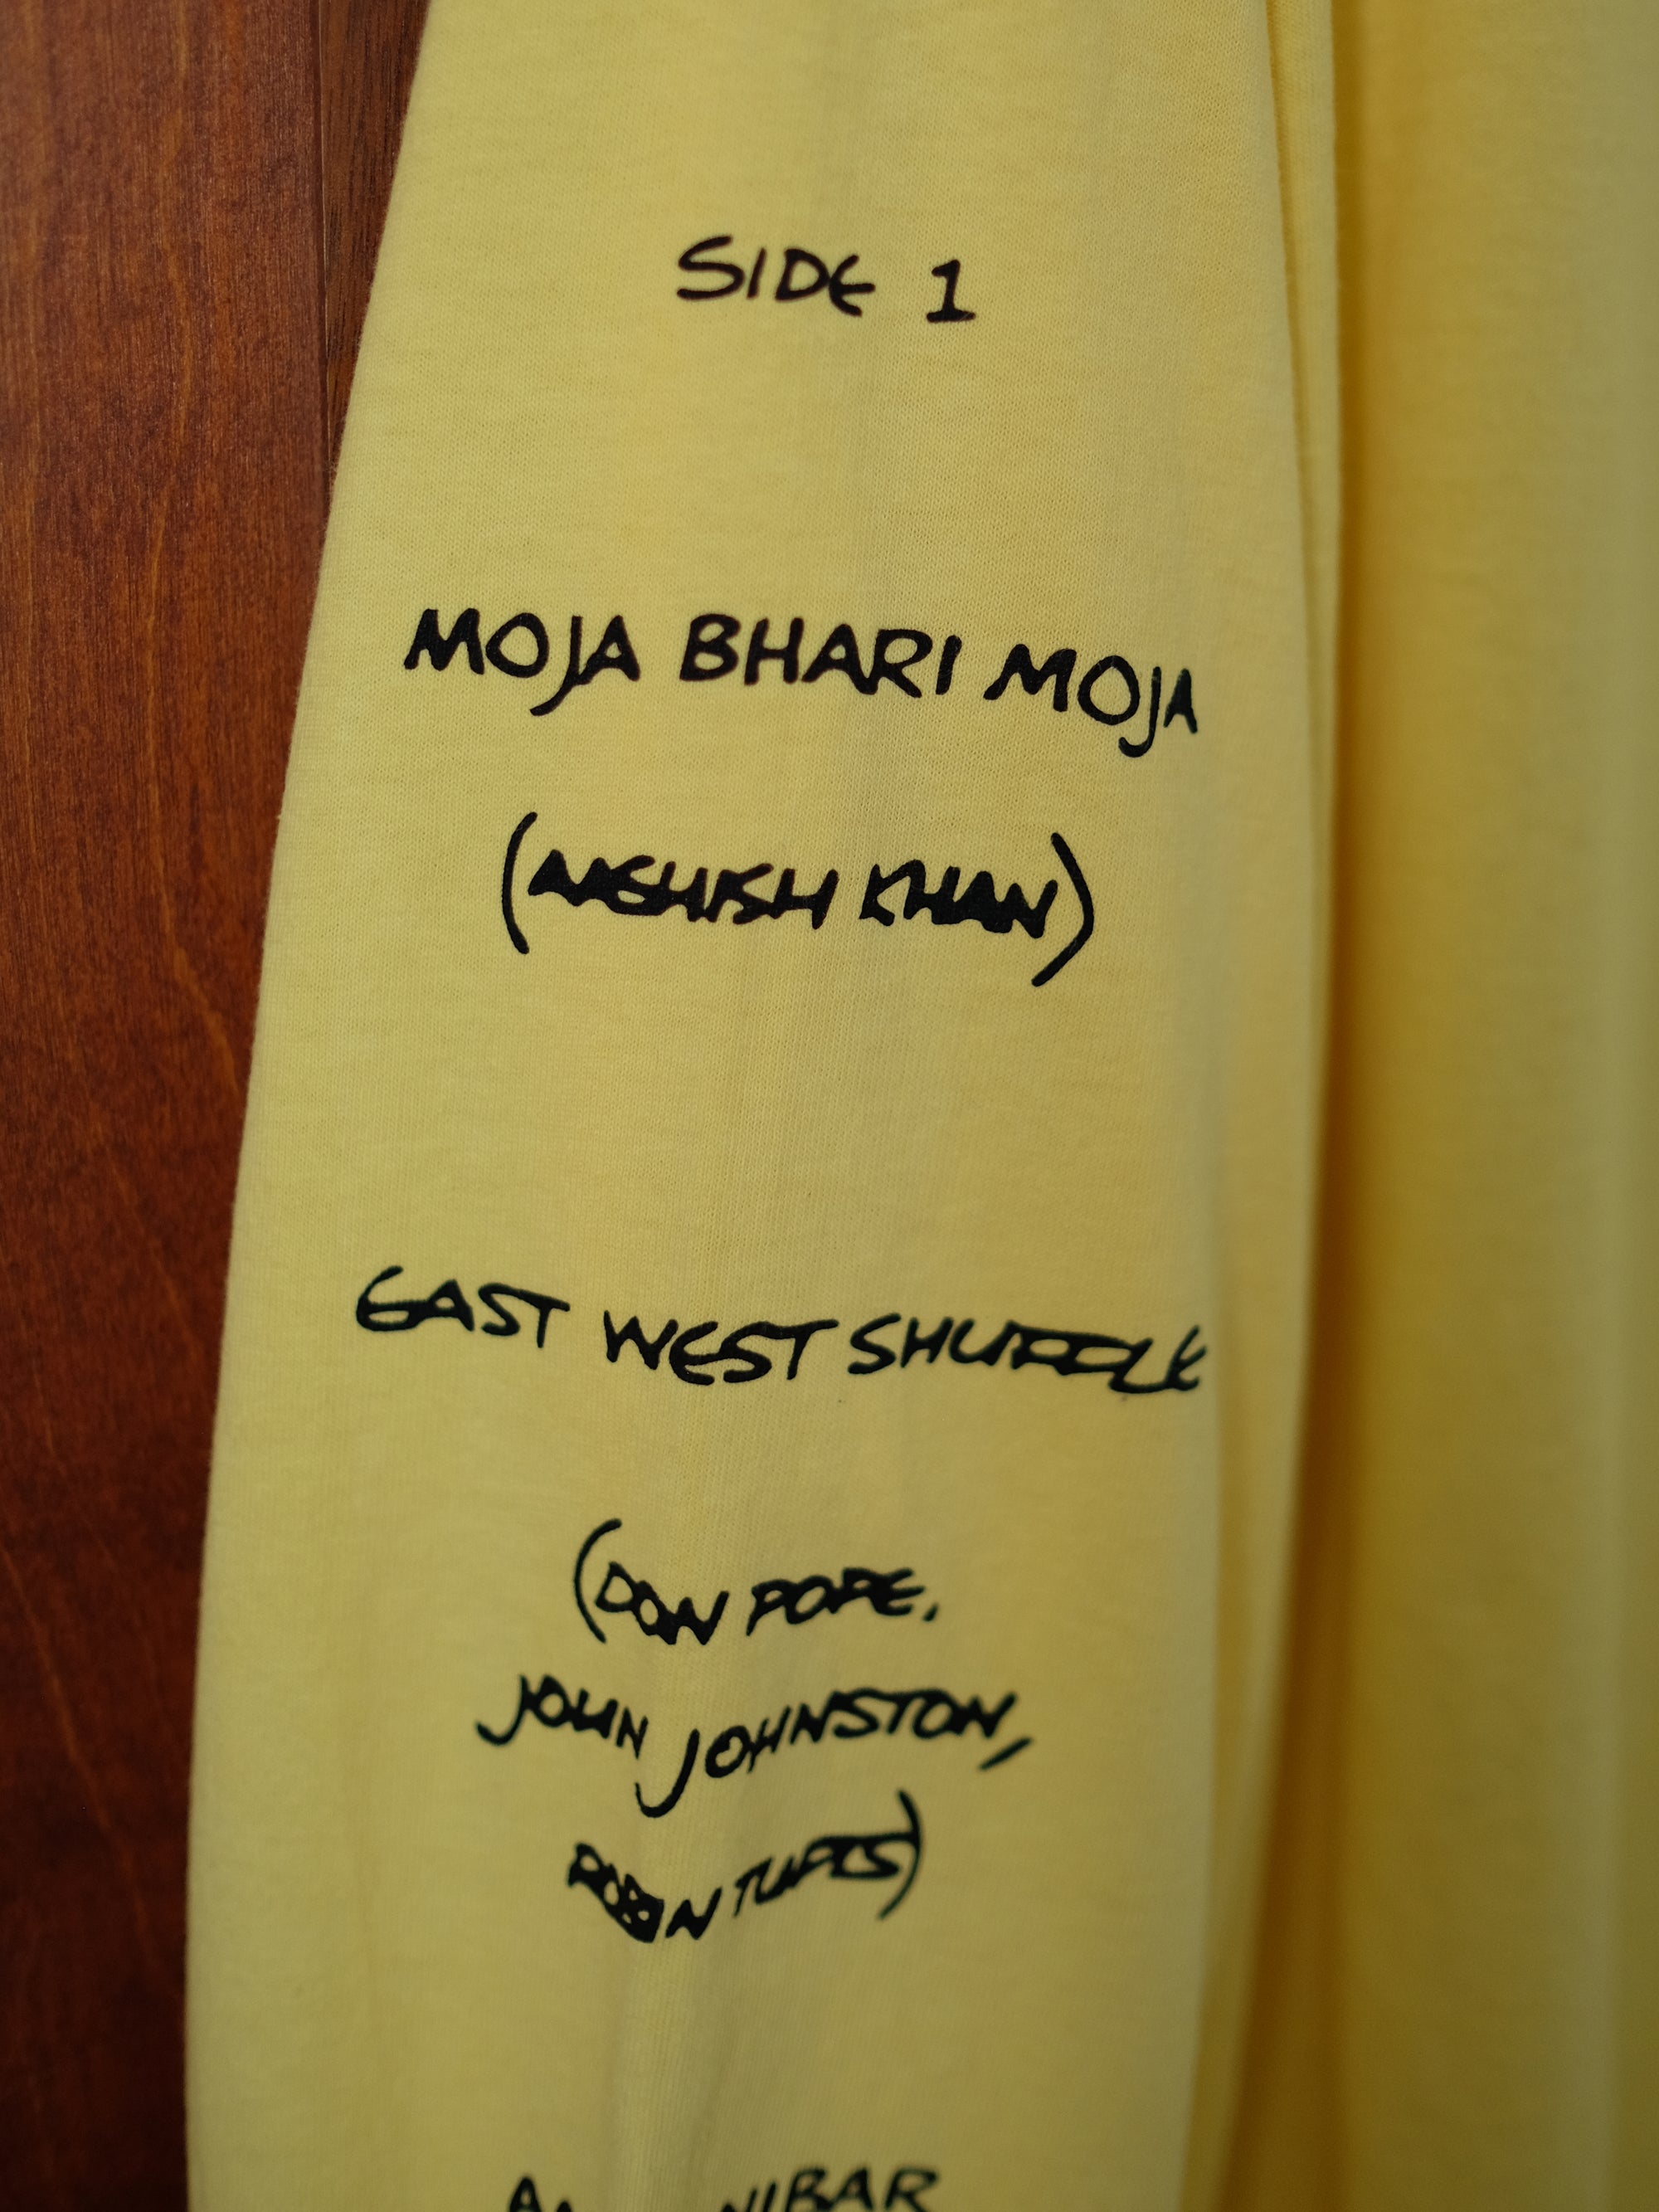 SIDE 1
MOJA BHARI MOJA
(AASHISH KHAN)
EAST WEST SHUFFLE
(DON POPE,
JOHN JOHNSTON,
ROBIN TUFTS)